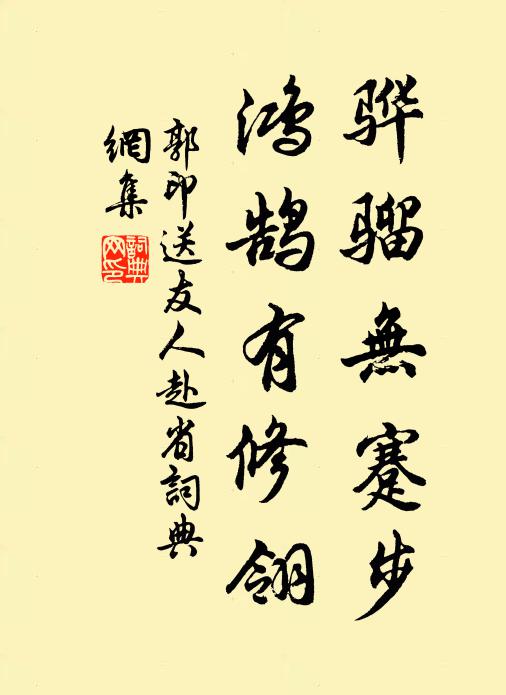 骅骝無蹇步
鸿鹄有修翎
郭印送友人赴省詞典
網集
詞典
网印